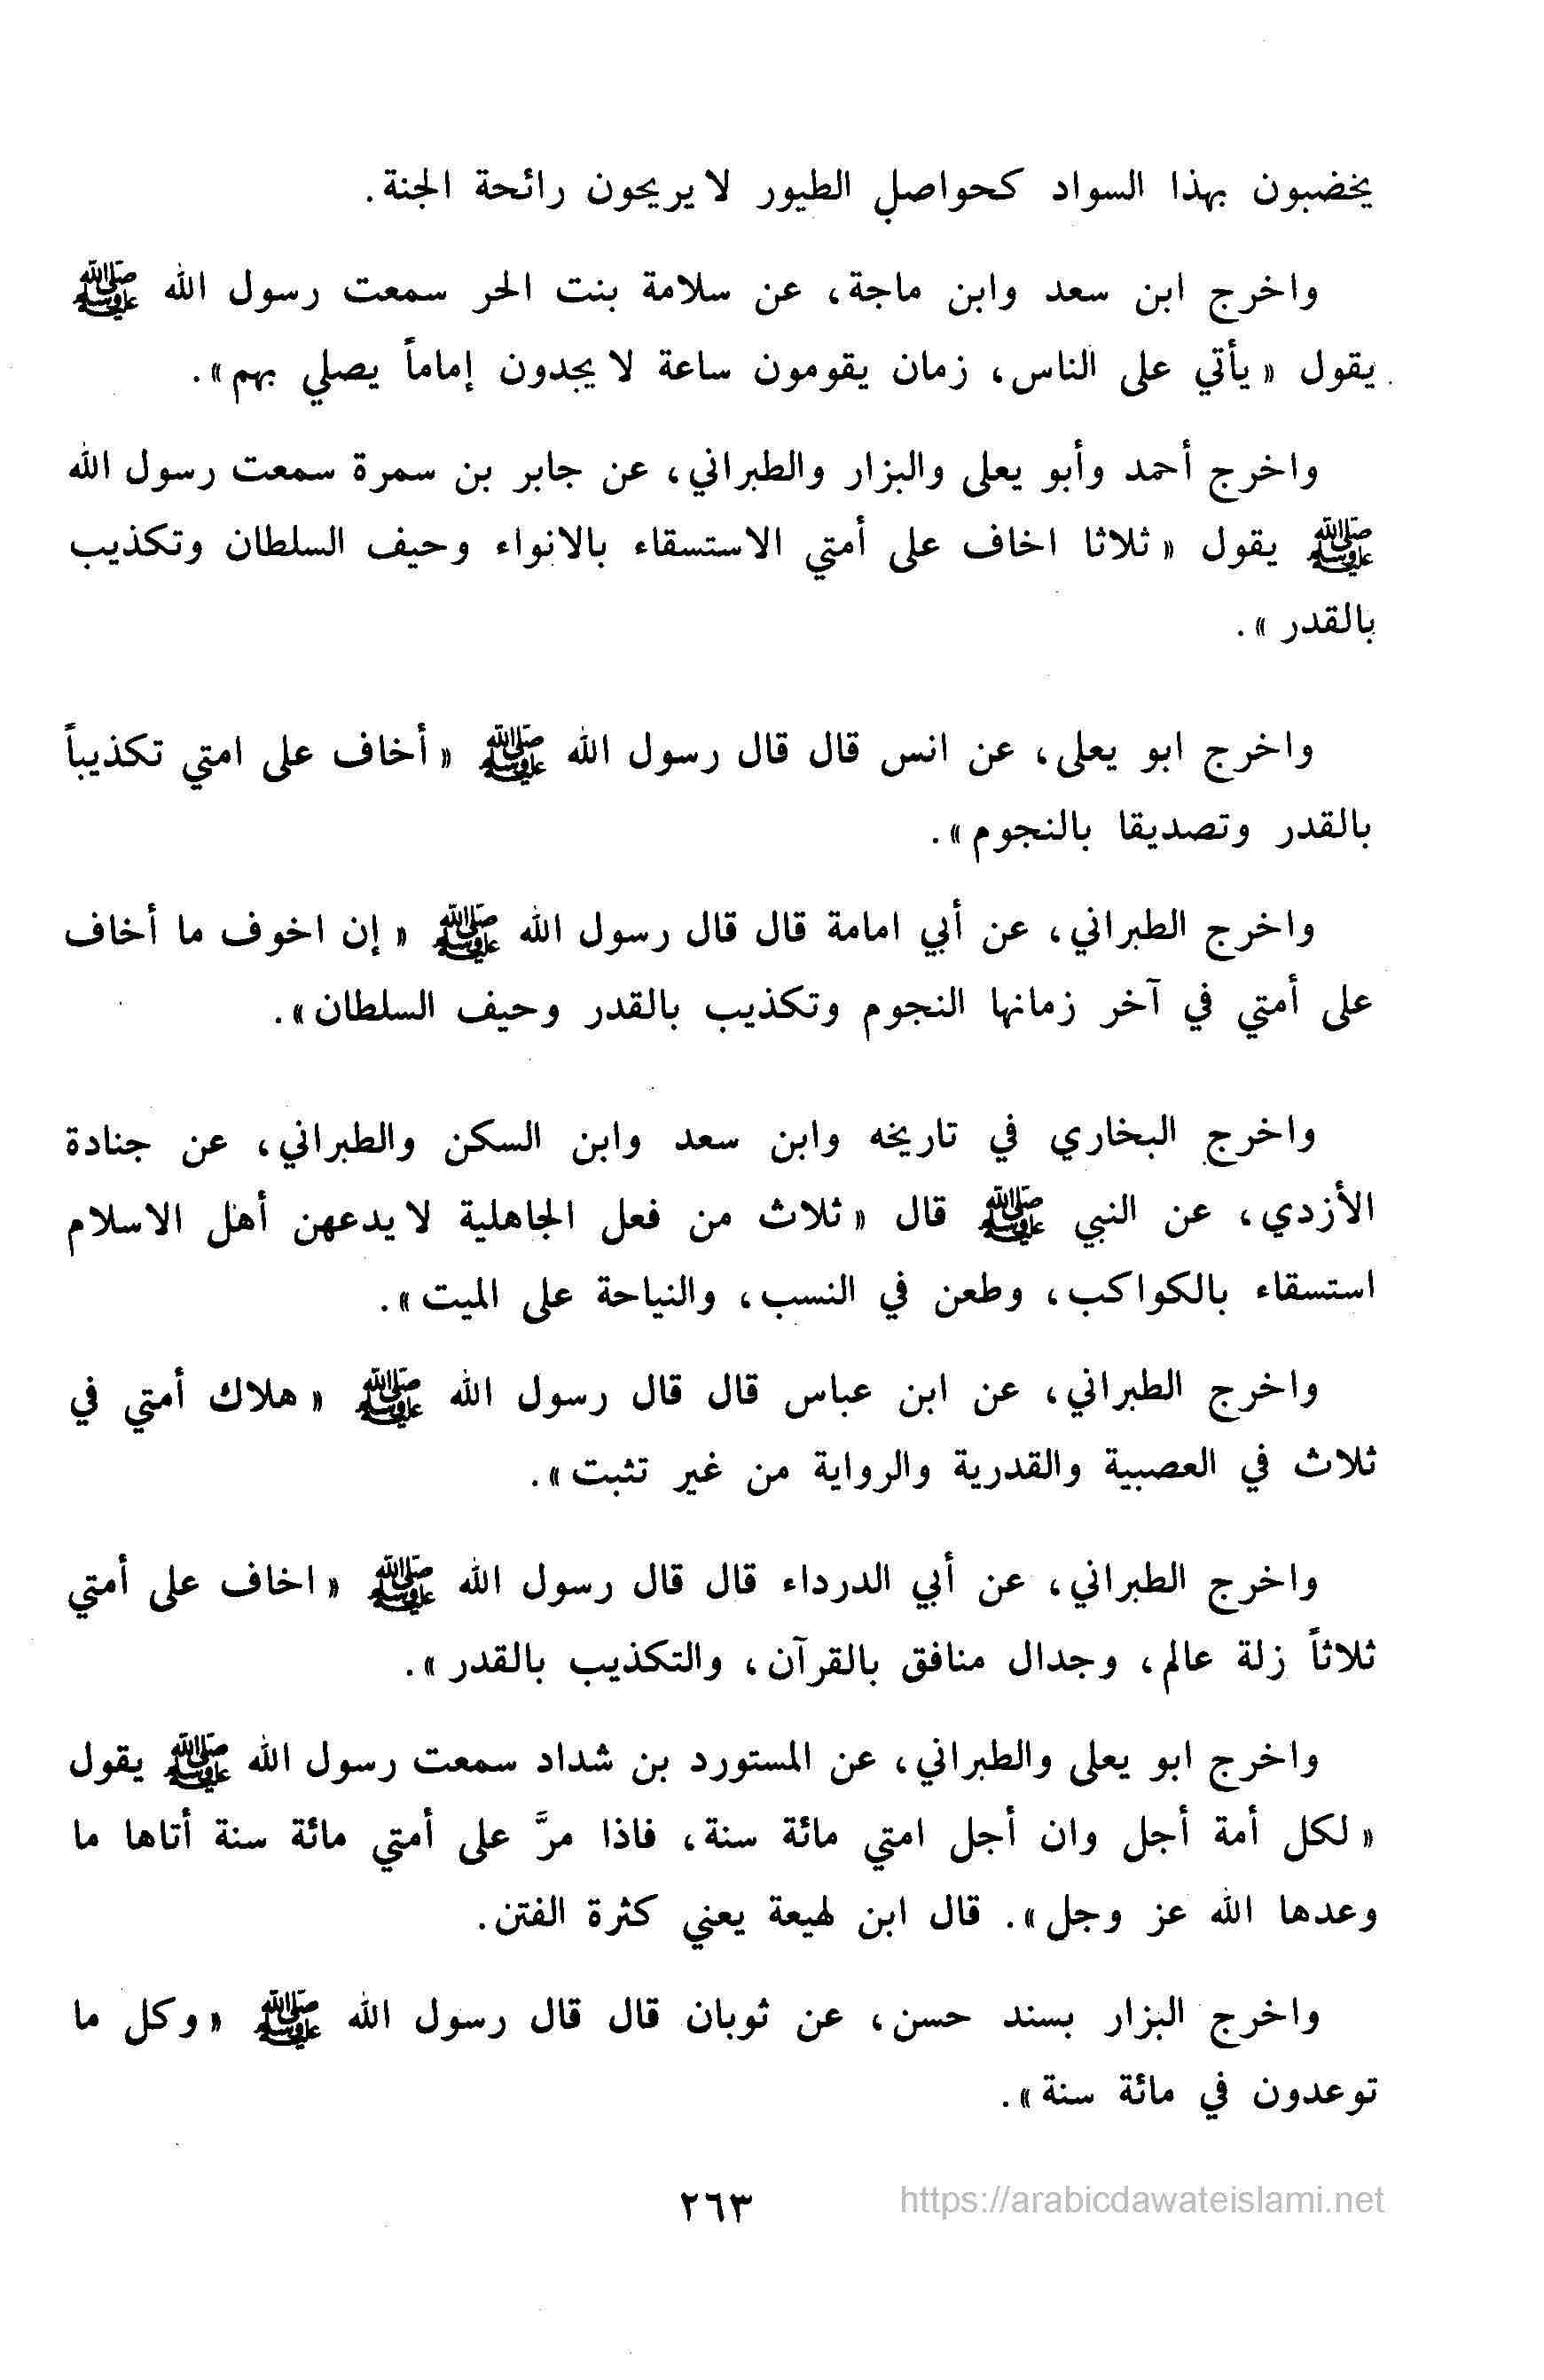 يخضبون بهذا السواد كحواصل الطيور لا يريحون رائحة الجنة.
واخرج ابن سعد وابن ماجة، عن سلامة بنت الحر سمعت رسول الله ﷺ
يقول «يأتي على الناس، زمان يقومون ساعة لا يجدون إماماً يصلي بهم».
واخرج أحمد وأبو يعلى والبزار والطبراني، عن جابر بن سمرة سمعت رسول الله
ﷺ يقول «ثلاثا اخاف على أمتي الاستسقاء بالانواء وحيف السلطان وتكذيب
بالقدر».
واخرج ابو يعلى، عن انس قال قال رسول الله ﷺ «أخاف على امتي تكذيباً
بالقدر وتصديقا بالنجوم».
واخرج الطبراني، عن أبي امامة قال قال رسول الله ﷺ «إن اخوف ما أخاف
على أمتي في آخر زمانها النجوم وتكذيب بالقدر وحيف السلطان».
واخرج البخاري في تاريخه وابن سعد وابن السكن والطبراني، عن جنادة
الأزدي، عن النبي ﷺ قال «ثلاث من فعل الجاهلية لا يدعهن أهل الاسلام
استسقاء بالكواكب، وطعن في النسب، والنياحة على الميت».
واخرج الطبراني، عن ابن عباس قال قال رسول الله ﷺ «هلاك أمتي في
ثلاث في العصبية والقدرية والرواية من غير تثبت».
واخرج الطبراني، عن أبي الدرداء قال قال رسول الله ﷺ «اخاف على أمتي
ثلاثاً زلة عالم، وجدال منافق بالقرآن، والتكذيب بالقدر».
واخرج ابو يعلى والطبراني، عن المستورد بن شداد سمعت رسول الله ﷺ يقول
«لكل أمة أجل وان أجل امتي مائة سنة، فاذا مرَّ على أمتي مائة سنة أتاها ما
وعدها الله عز وجل». قال ابن لهيعة يعني كثرة الفتن.
واخرج البزار بسند حسن، عن ثوبان قال قال رسول الله ﷺ «وكل ما
توعدون في مائة سنة».
٢٦٣
https://arabicdawateislami.net